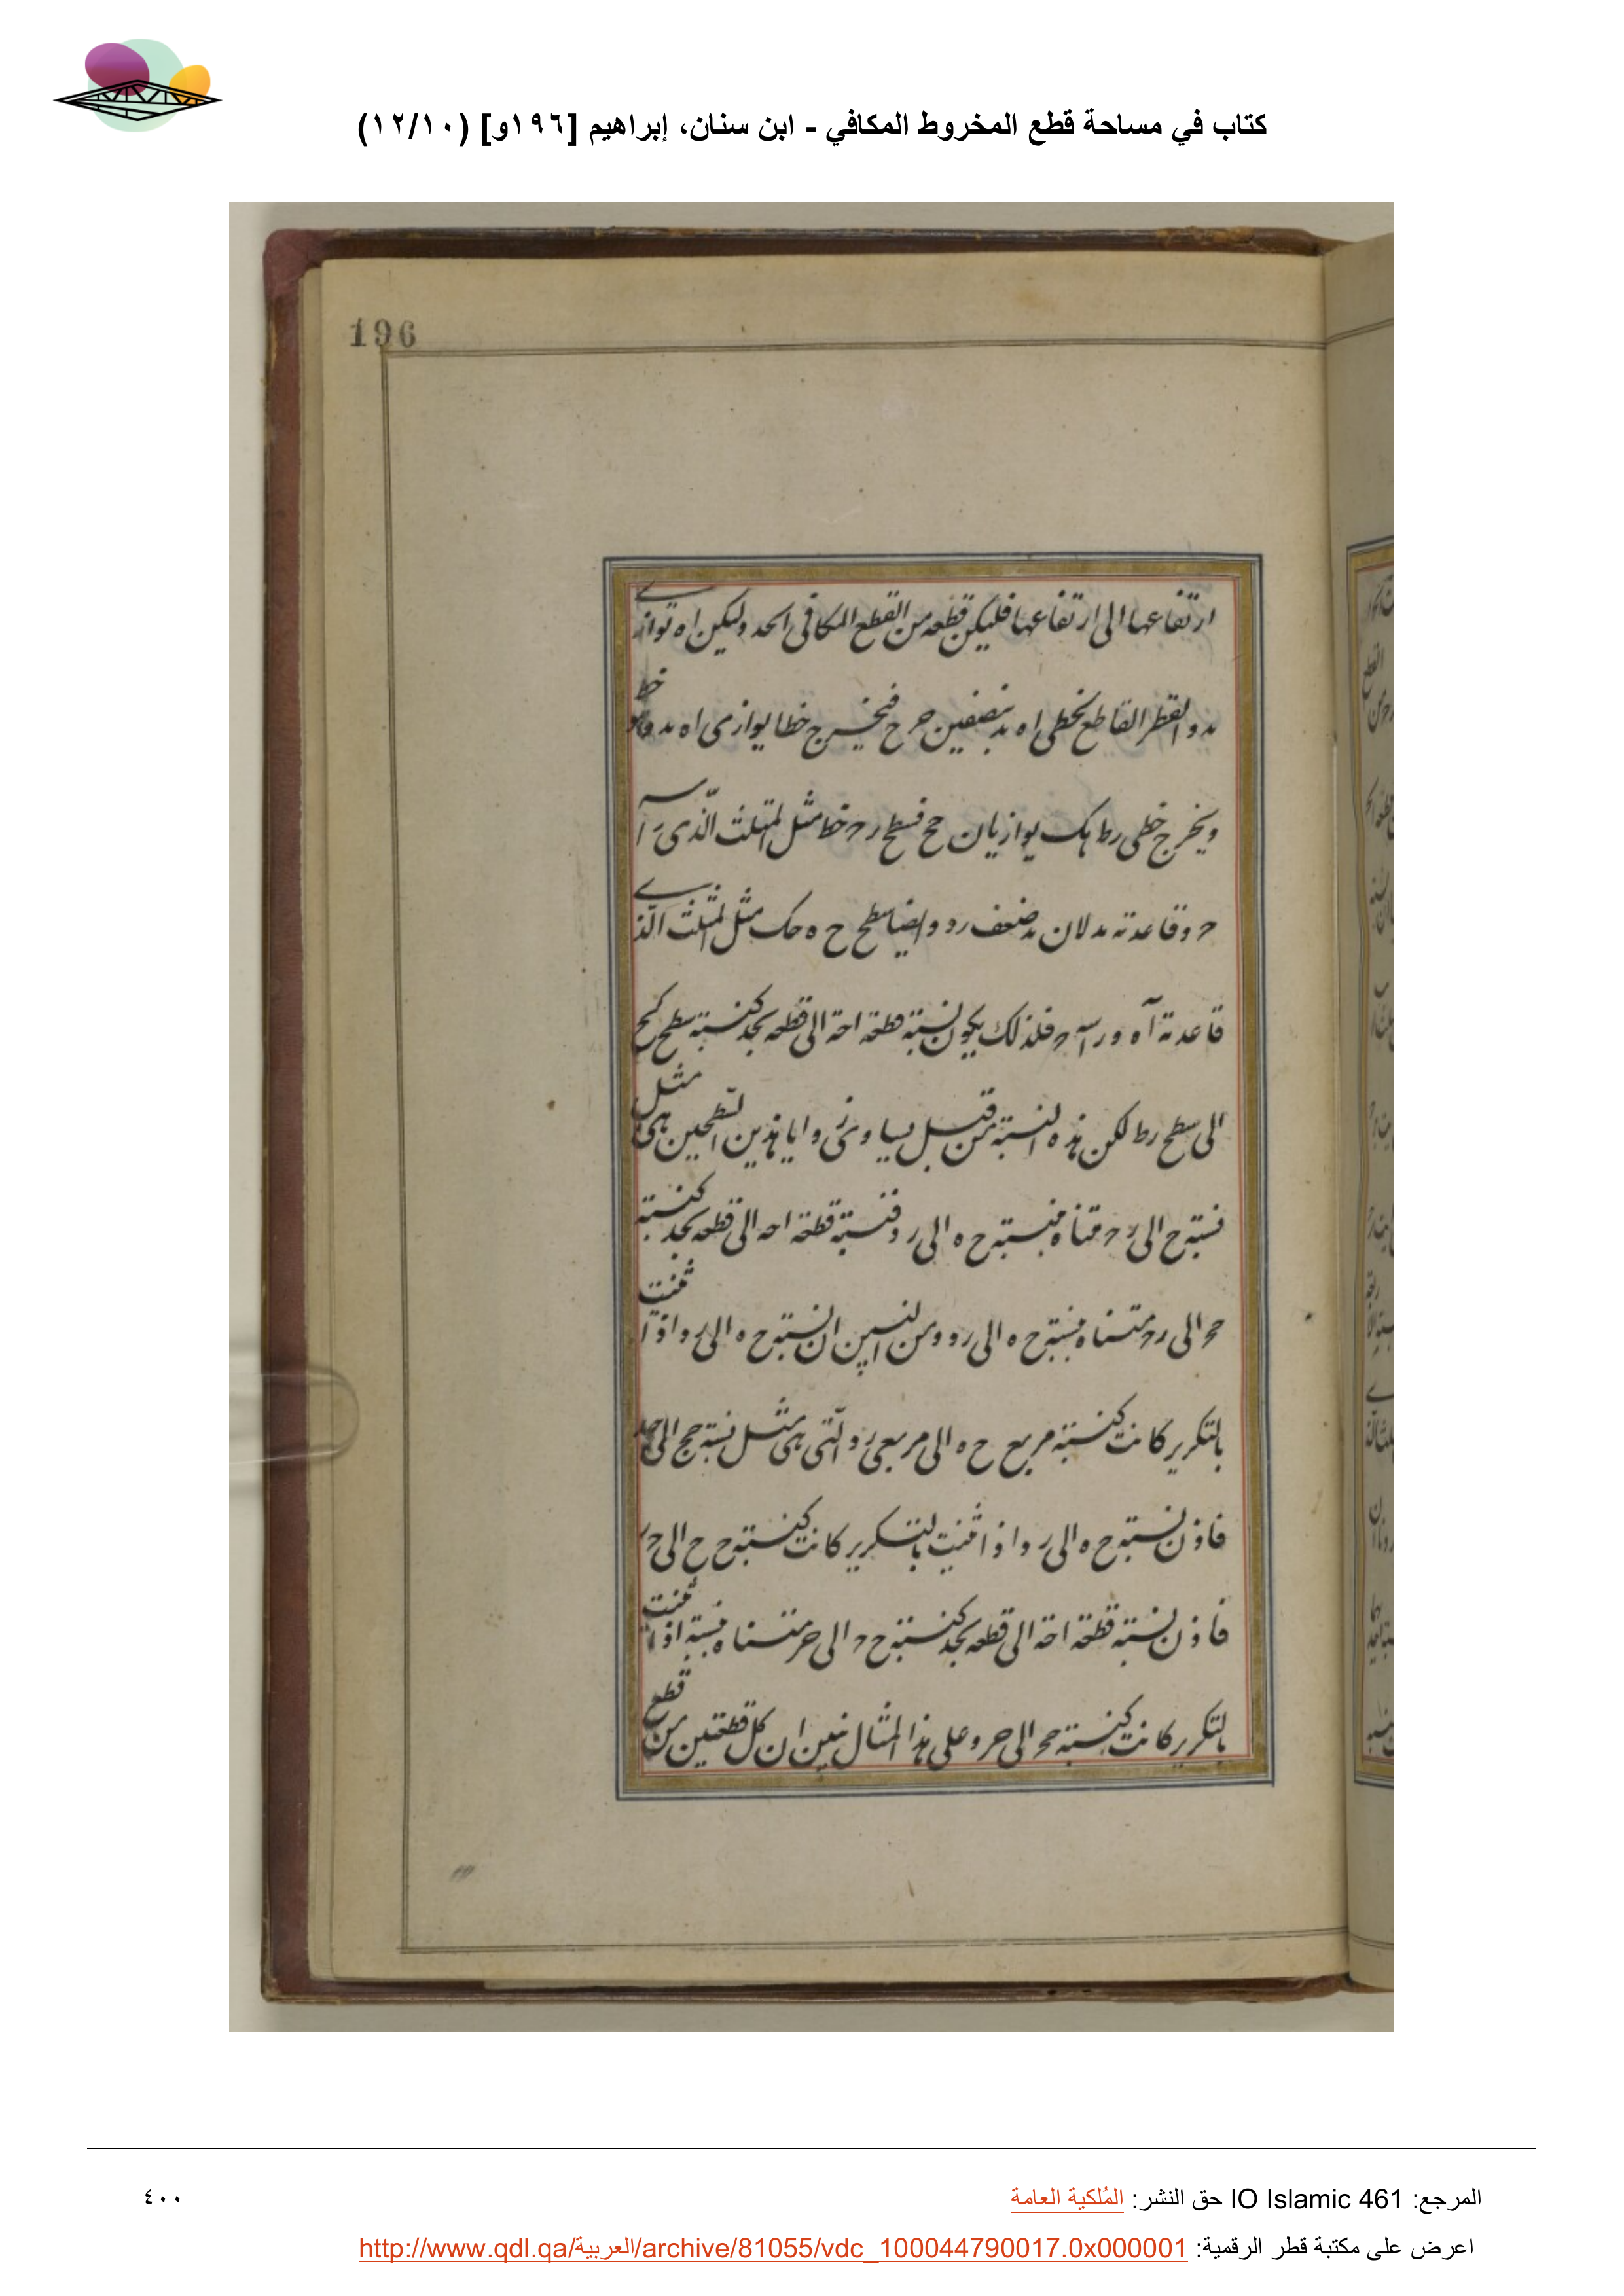 كتاب في مساحة قطع المخروط المكافي - ابن سنان، إبراهيم [١٩٦و] (١٢/١٠)
196
ارتفاعها الى ارتفاعها فليكن قطعه من القطع المكافى احد وليكن اه توازى
ٮد والقطر القاطع لخطى اه ٮد بنصفين ح فيخرج خطا يوازى اه ٮد خط
ويخرج خطى رط هك يوازيان ح ح فسطح خط مثل المثلث الذى راسه
ح وقاعدته ٮد لان ٮد ضعف رد وايضا سطح ح ه حك مثل المثلث الذى
قاعدته اه وراسه ح فلذلك يكون نسبة قطعة احه الى قطعه ٮحد كنسبة سطح كح
الى سطح رط لكن هذه النسبة من قبل تساوى زوايا هذين السطحين هى مثل
فنسبة ح الى رح مثناه بنسبة ح ه الى رد فنسبة قطعة احه الى قطعه ٮحد كنسبة
حح الى رح مثناه بنسبة ح ه الى رد ومن البين ان نسبة ح ه الى رد اذا ثنيت
بالتكرير كانت كنسبة مربع ح ه الى مربعى رد التى هى مثل نسبة حح الى
فاذن نسبة ح ه الى رد اذا ثنيت بالتكرير كانت كنسبة ح ح الى ح ر
فاذن نسبة قطعة احه الى قطعه ٮحد كنسبة ح ح الى حر مثناه بنسبة اذا ثنيت
بالتكرير كانت كنسبة حح الى حر وعلى هذا المثال نبين ان كل قطعتين من قطع
المرجع: IO Islamic 461 حق النشر: المُلكية العامة
٤٠٠
اعرض على مكتبة قطر الرقمية: http://www.qdl.qa/العربية/archive/81055/vdc_100044790017.0x000001